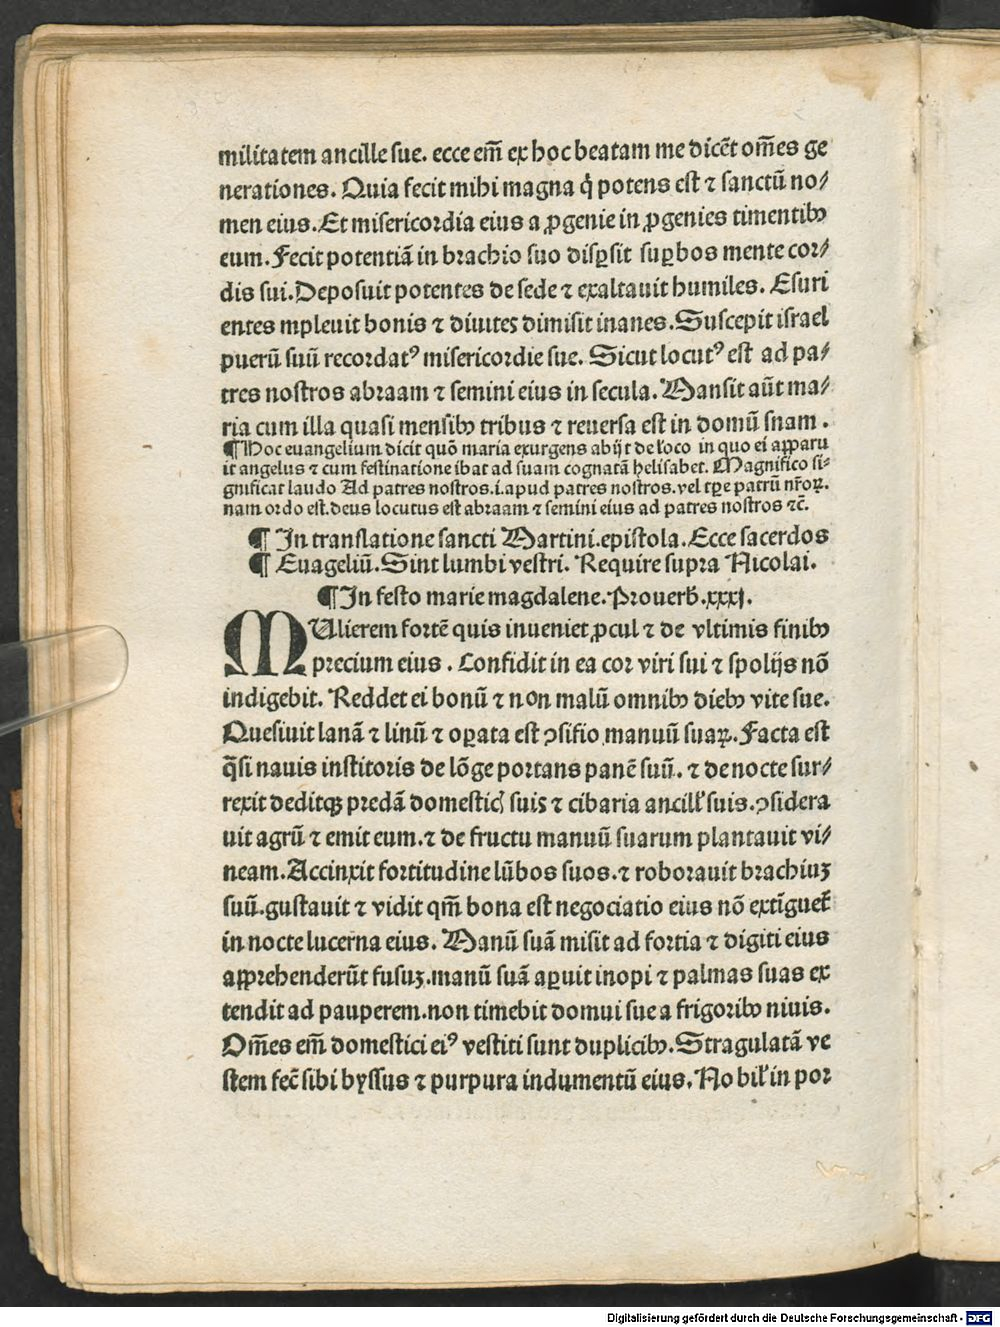 militatem ancille sue. ecce em̄ ex hoc beatam me dicēt om̄es ge
nerationes. Quia fecit mihi magna q̇ potens est ⁊ sanctū no⸗
men eius. Et misericordia eius a ꝓgenie in ꝓgenies timentibꝫ
eum. Fecit potentiā in brachio suo disꝑsit suꝑbos mente cor⸗
dis sui. Deposuit potentes de sede ⁊ exaltauit humiles. Esuri
entes mpleuit bonis ⁊ diuites dimisit inanes. Suscepit israel
puerū suū recordatꝰ misericordie sue. Sicut locutꝰ est ad pa⸗
tres nostros abraam ⁊ semini eius in secula. Mansit aūt ma⸗
ria cum illa quasi mensibꝫ tribus ⁊ reuersa est in domū snam.
¶ Hoc euangelium dicit quō maria exurgens abijt de loco in quo ei apparu
it angelus ⁊ cum festinatione ibat ad suam cognatā helisabet. Magnifico si⸗
gnificat laudo Ad patres nostros .i. apud patres nostros. vel tꝑe patrū nr̄oꝝ.
nam ordo est. deus locutus est abraam ⁊ semini eius ad patres nostros ⁊c̄.
¶ In translatione sancti Martini. epistola. Ecce sacerdos
¶ Euageliū. Sint lumbi vestri. Require supra Nicolai.
¶ In festo marie magdalene. Prouerb̄. xxxj.
MUlierem fortē quis inueniet ꝓcul ⁊ de vltimis finibꝫ
precium eius. Confidit in ea cor viri sui ⁊ spolijs nō
indigebit. Reddet ei bonū ⁊ non malū omnibꝫ diebꝫ vite sue.
Quesiuit lanā ⁊ linū ⁊ oꝑata est ꝯsilio manuū suaꝝ. Facta est
q̄si nauis institoris de lōge portans panē suū. ⁊ de nocte sur⸗
rexit deditqꝫ predā domestic̄ suis ⁊ cibaria ancill̄ suis. ꝯsidera
uit agrū ⁊ emit eum. ⁊ de fructu manuū suarum plantauit vi⸗
neam. Accinxit fortitudine lūbos suos. ⁊ roborauit brachiuꝫ
suū. gustauit ⁊ vidit qm̄ bona est negociatio eius nō extīguet̄
in nocte lucerna eius. Manū suā misit ad fortia ⁊ digiti eius
apprehenderūt fusuꝫ. manū suā aꝑuit inopi ⁊ palmas suas ex
tendit ad pauperem. non timebit domui sue a frigoribꝫ niuis.
Om̄es em̄ domestici eiꝰ vestiti sunt duplicibꝫ. Stragulatā ve
stem fec̄ sibi byssus ⁊ purpura indumentū eius. Nobil̄ in por
Digitalisierung gefördert durch die Deutsche Forschungsgemeinschaft - DFG